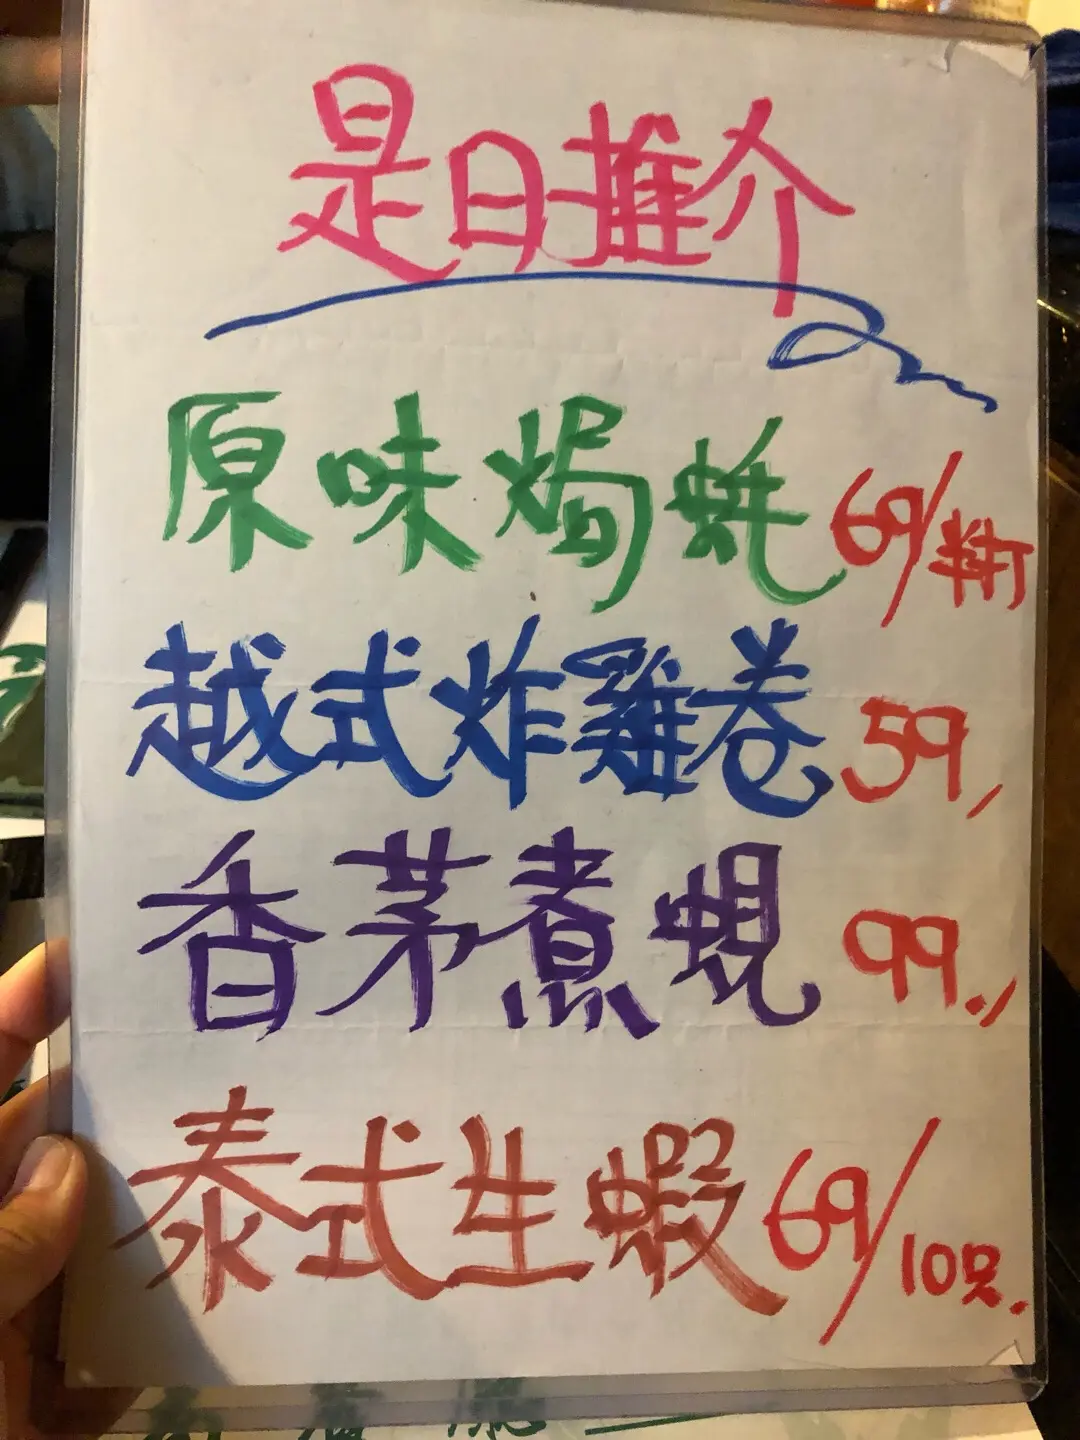 是日推介
原味焗蚝 69/
越式炸雞卷 59,
香茅煮蜆 99.,
泰式生蝦 69/10只.